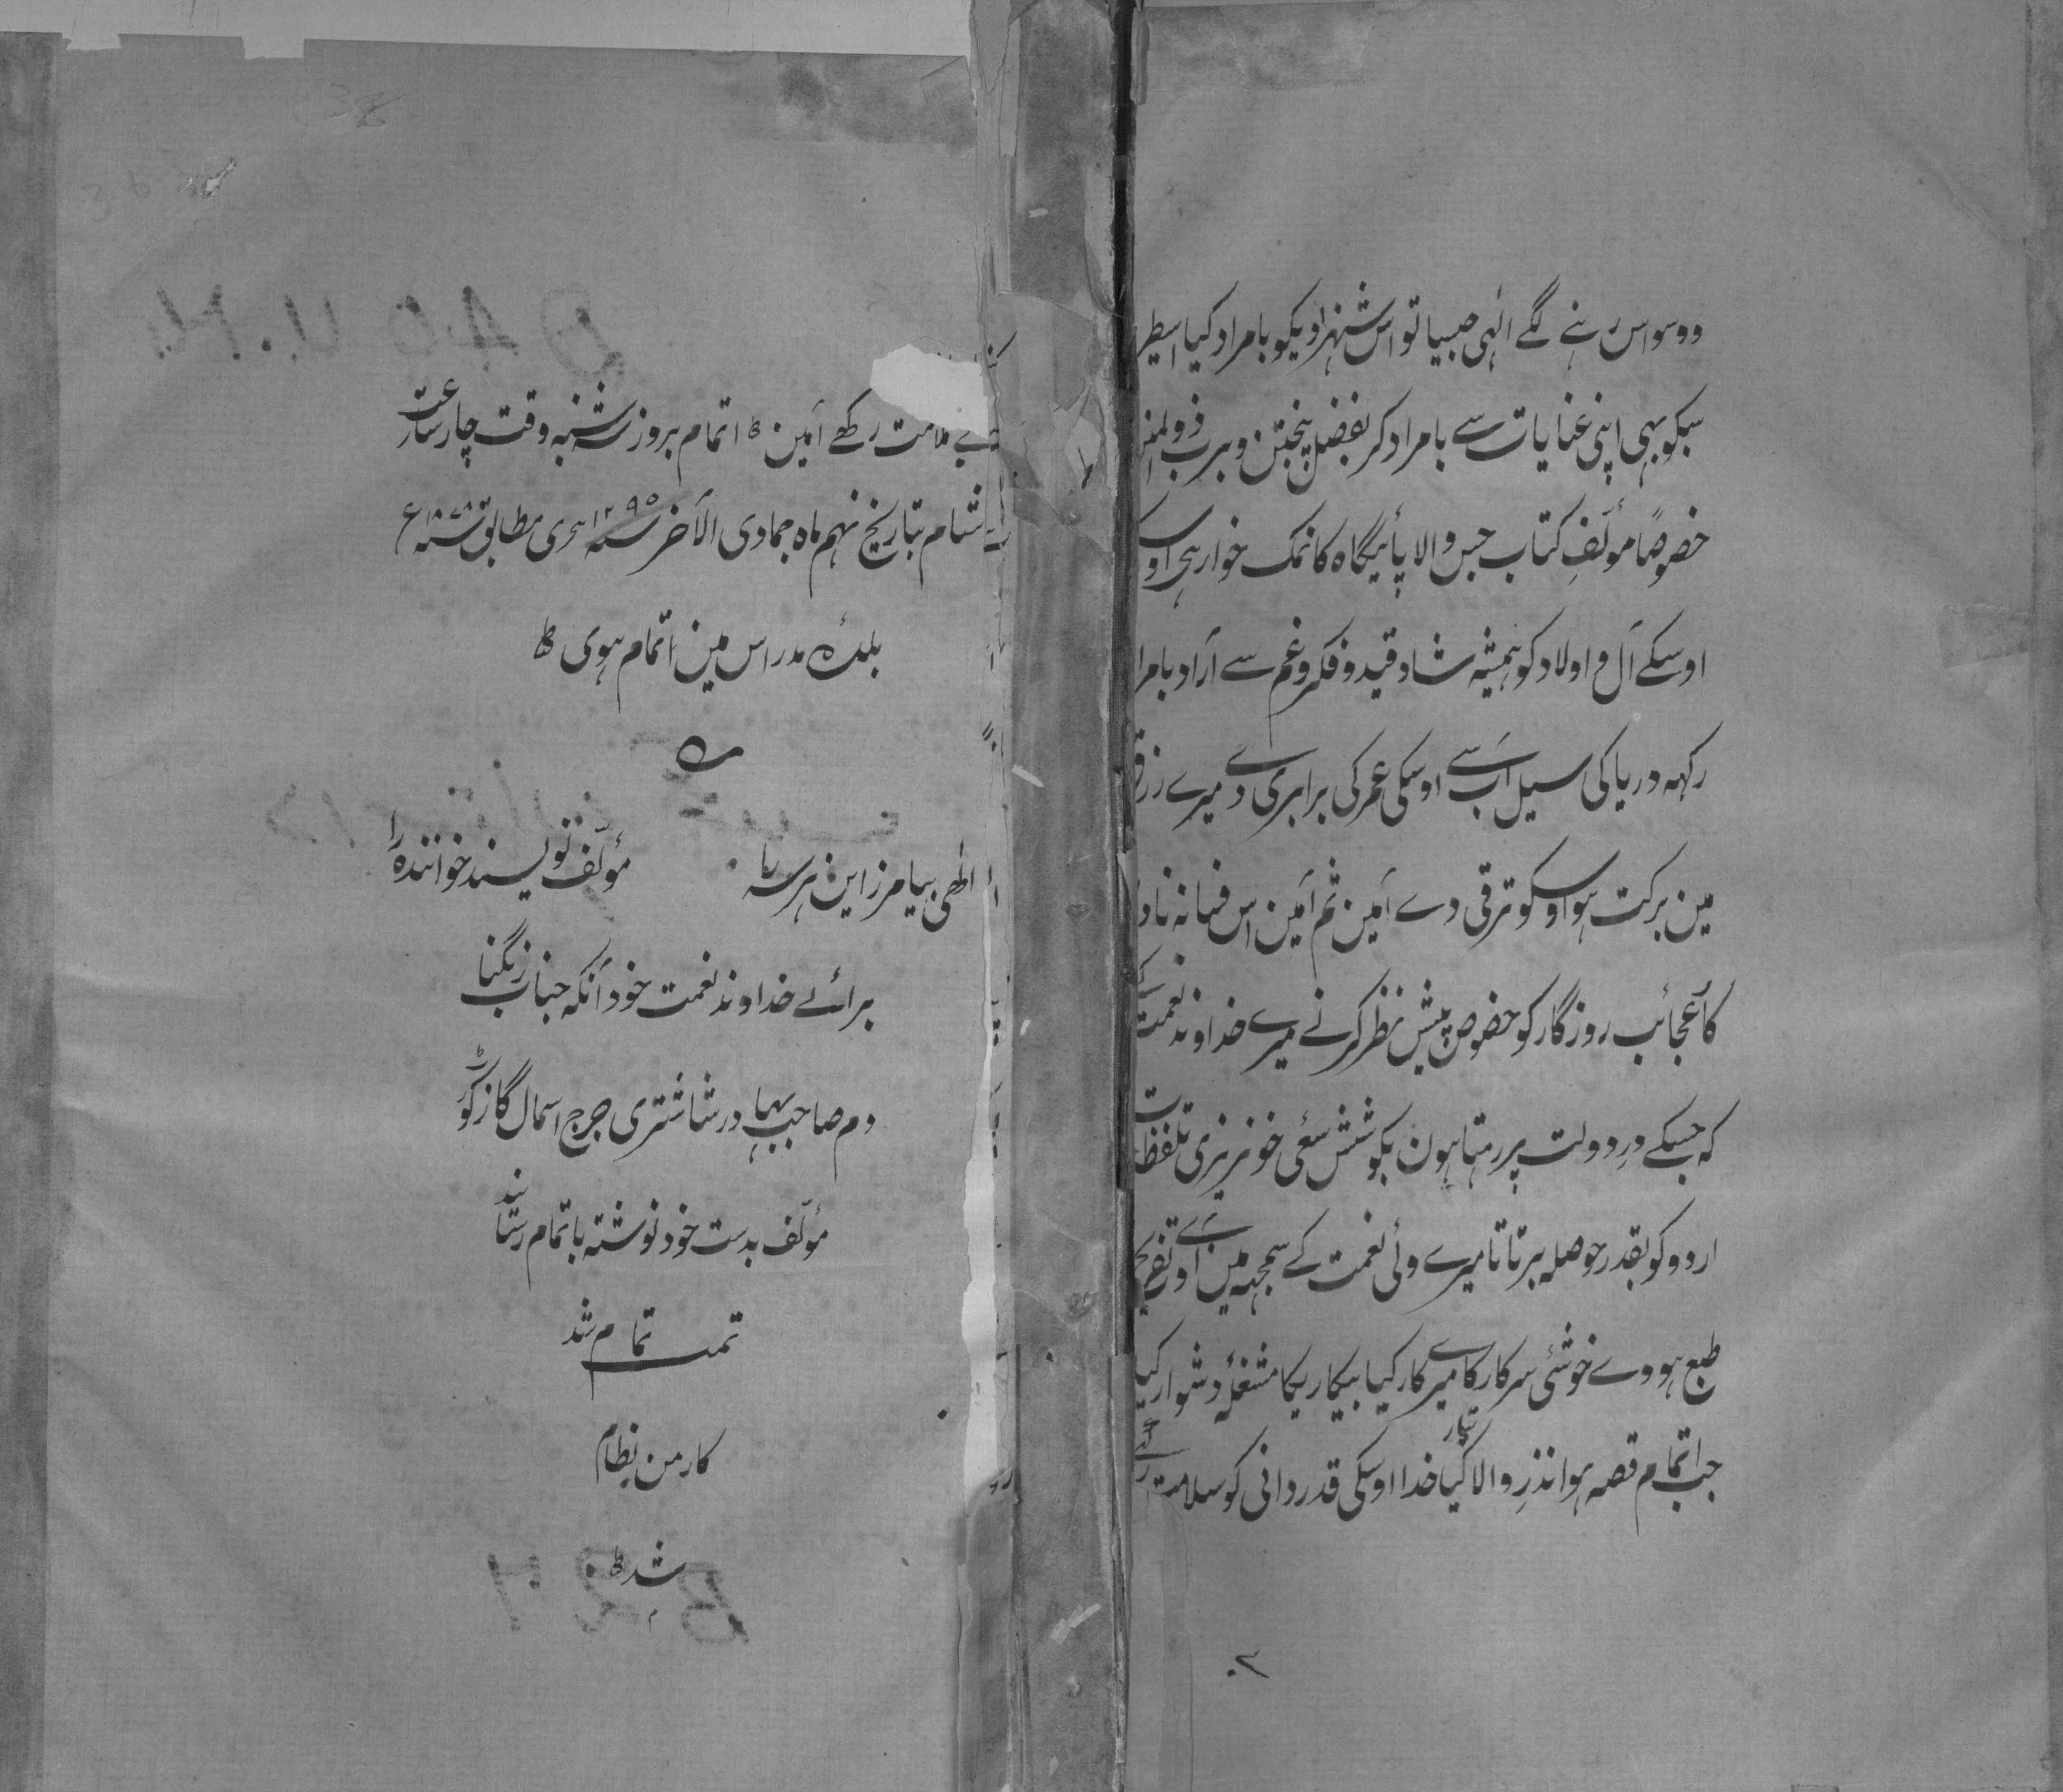 ووسواس رہنے لگے الٰہی جیسا تو اس شہزادیکو بامراد کیا اسیطر
سبکو بہی اپنی عنایات سے بامراد کر بفضل پنجتن و برب ذوالمنن
خصوصاً مؤلفِ کتاب جس والا پائیگاہ کا نمک خوار ہی اوس
اوسکے آل و اولاد کو ہمیشہ شاد قید و فکر و غم سے آزاد بامرا
رکہہ دریا کی سیل آب سے اوسکی عمر کی برابری دے میرے رزق
مین برکت ہو اوسکو ترقی دے آمین ثم آمین اس فسانہ ناد
کا عجائب روزگار کو خصوص پیش نظر کرنے میرے خداوند نعمت کے
کہ جسکے درِ دولت پر رہتا ہون بکوشش سعی خونریزی تلفظات
اردو کو بقدر حوصلہ برتا تا میرے ولی نعمت کے سمجہہ مین آوے تفریح
طبع ہووے خوشئی سرکار کا میرے کار کیا بیکاریکا مشغلۂ دشوار کیا
جب اتمام قصہ ہوا نذرِ والا کیا تیار خدا اوسکی قدردانی کو سلامت رکہے
۳۰
سلامت رکھے آمین ؀ اتمام بروز سہ شنبہ وقت چار ساعت
شام بتاریخ نہم ماہ جمادی الآخر سنہ ۱۲۹۵ ہجری مطابق سنہ ۱۸۷۸ ع
بلدۂ مدراس مین اتمام ہوی ؀
ہ
الٰھی بیامرز این ہر سہ را مؤلف نویسند خوانندہ را
برائے خداوند نعمت خود آنکہ جناب زنگنا
دم صاحب بہادر شاشتری جرج اسمال گاز کورٹ
مؤلف بدست خود نوشتہ باتمام رسانید
تمت تمام شد
کار من نظام
شد ؀
DAOU.M.
B27
36
38